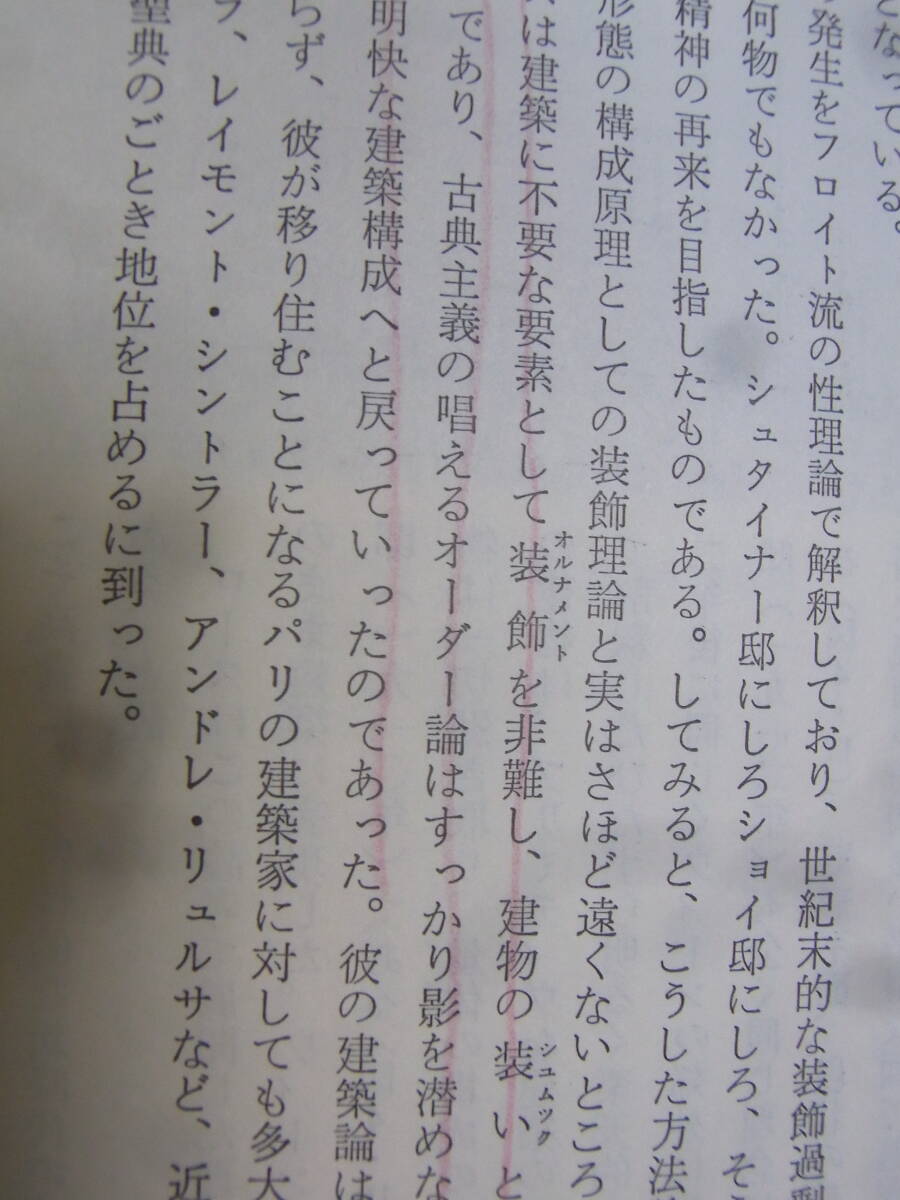 となっている。
発生をフロイト流の性理論で解釈しており、世紀末的な装飾過剰
何物でもなかった。シュタイナー邸にしろショイ邸にしろ、そ
精神の再来を目指したものである。してみると、こうした方法
形態の構成原理としての装飾理論と実はさほど遠くないところ
は建築に不要な要素として装飾を非難し、建物の装いと
オルナメント
シュムック
であり、古典主義の唱えるオーダー論はすっかり影を潜めな
明快な建築構成へと戻っていったのであった。彼の建築論は
らず、彼が移り住むことになるパリの建築家に対しても多大
ラ、レイモント・シントラー、アンドレ・リュルサなど、近
聖典のごとき地位を占めるに到った。